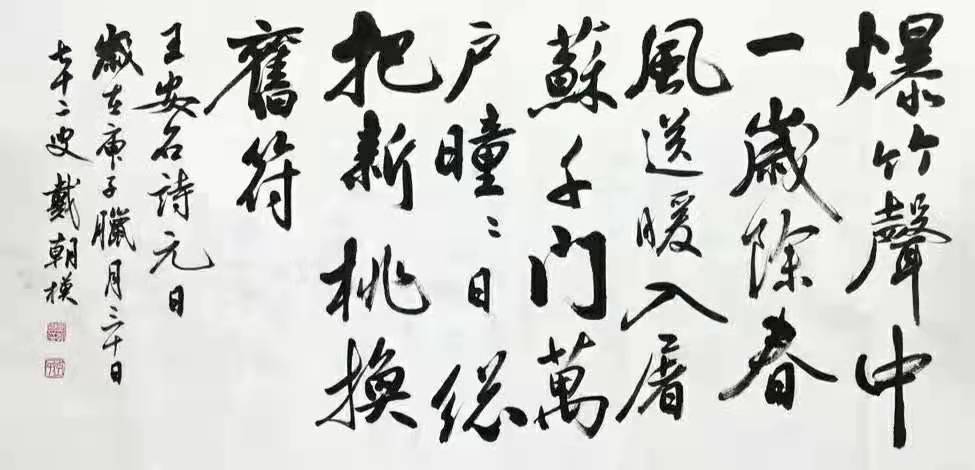 爆竹聲中
一歲除春
風送暖入屠
蘇千門萬
戶曈〻日總
把新桃換
舊符
王安石詩元日
歲在庚子臘月三十日
七十二叟戴朝模